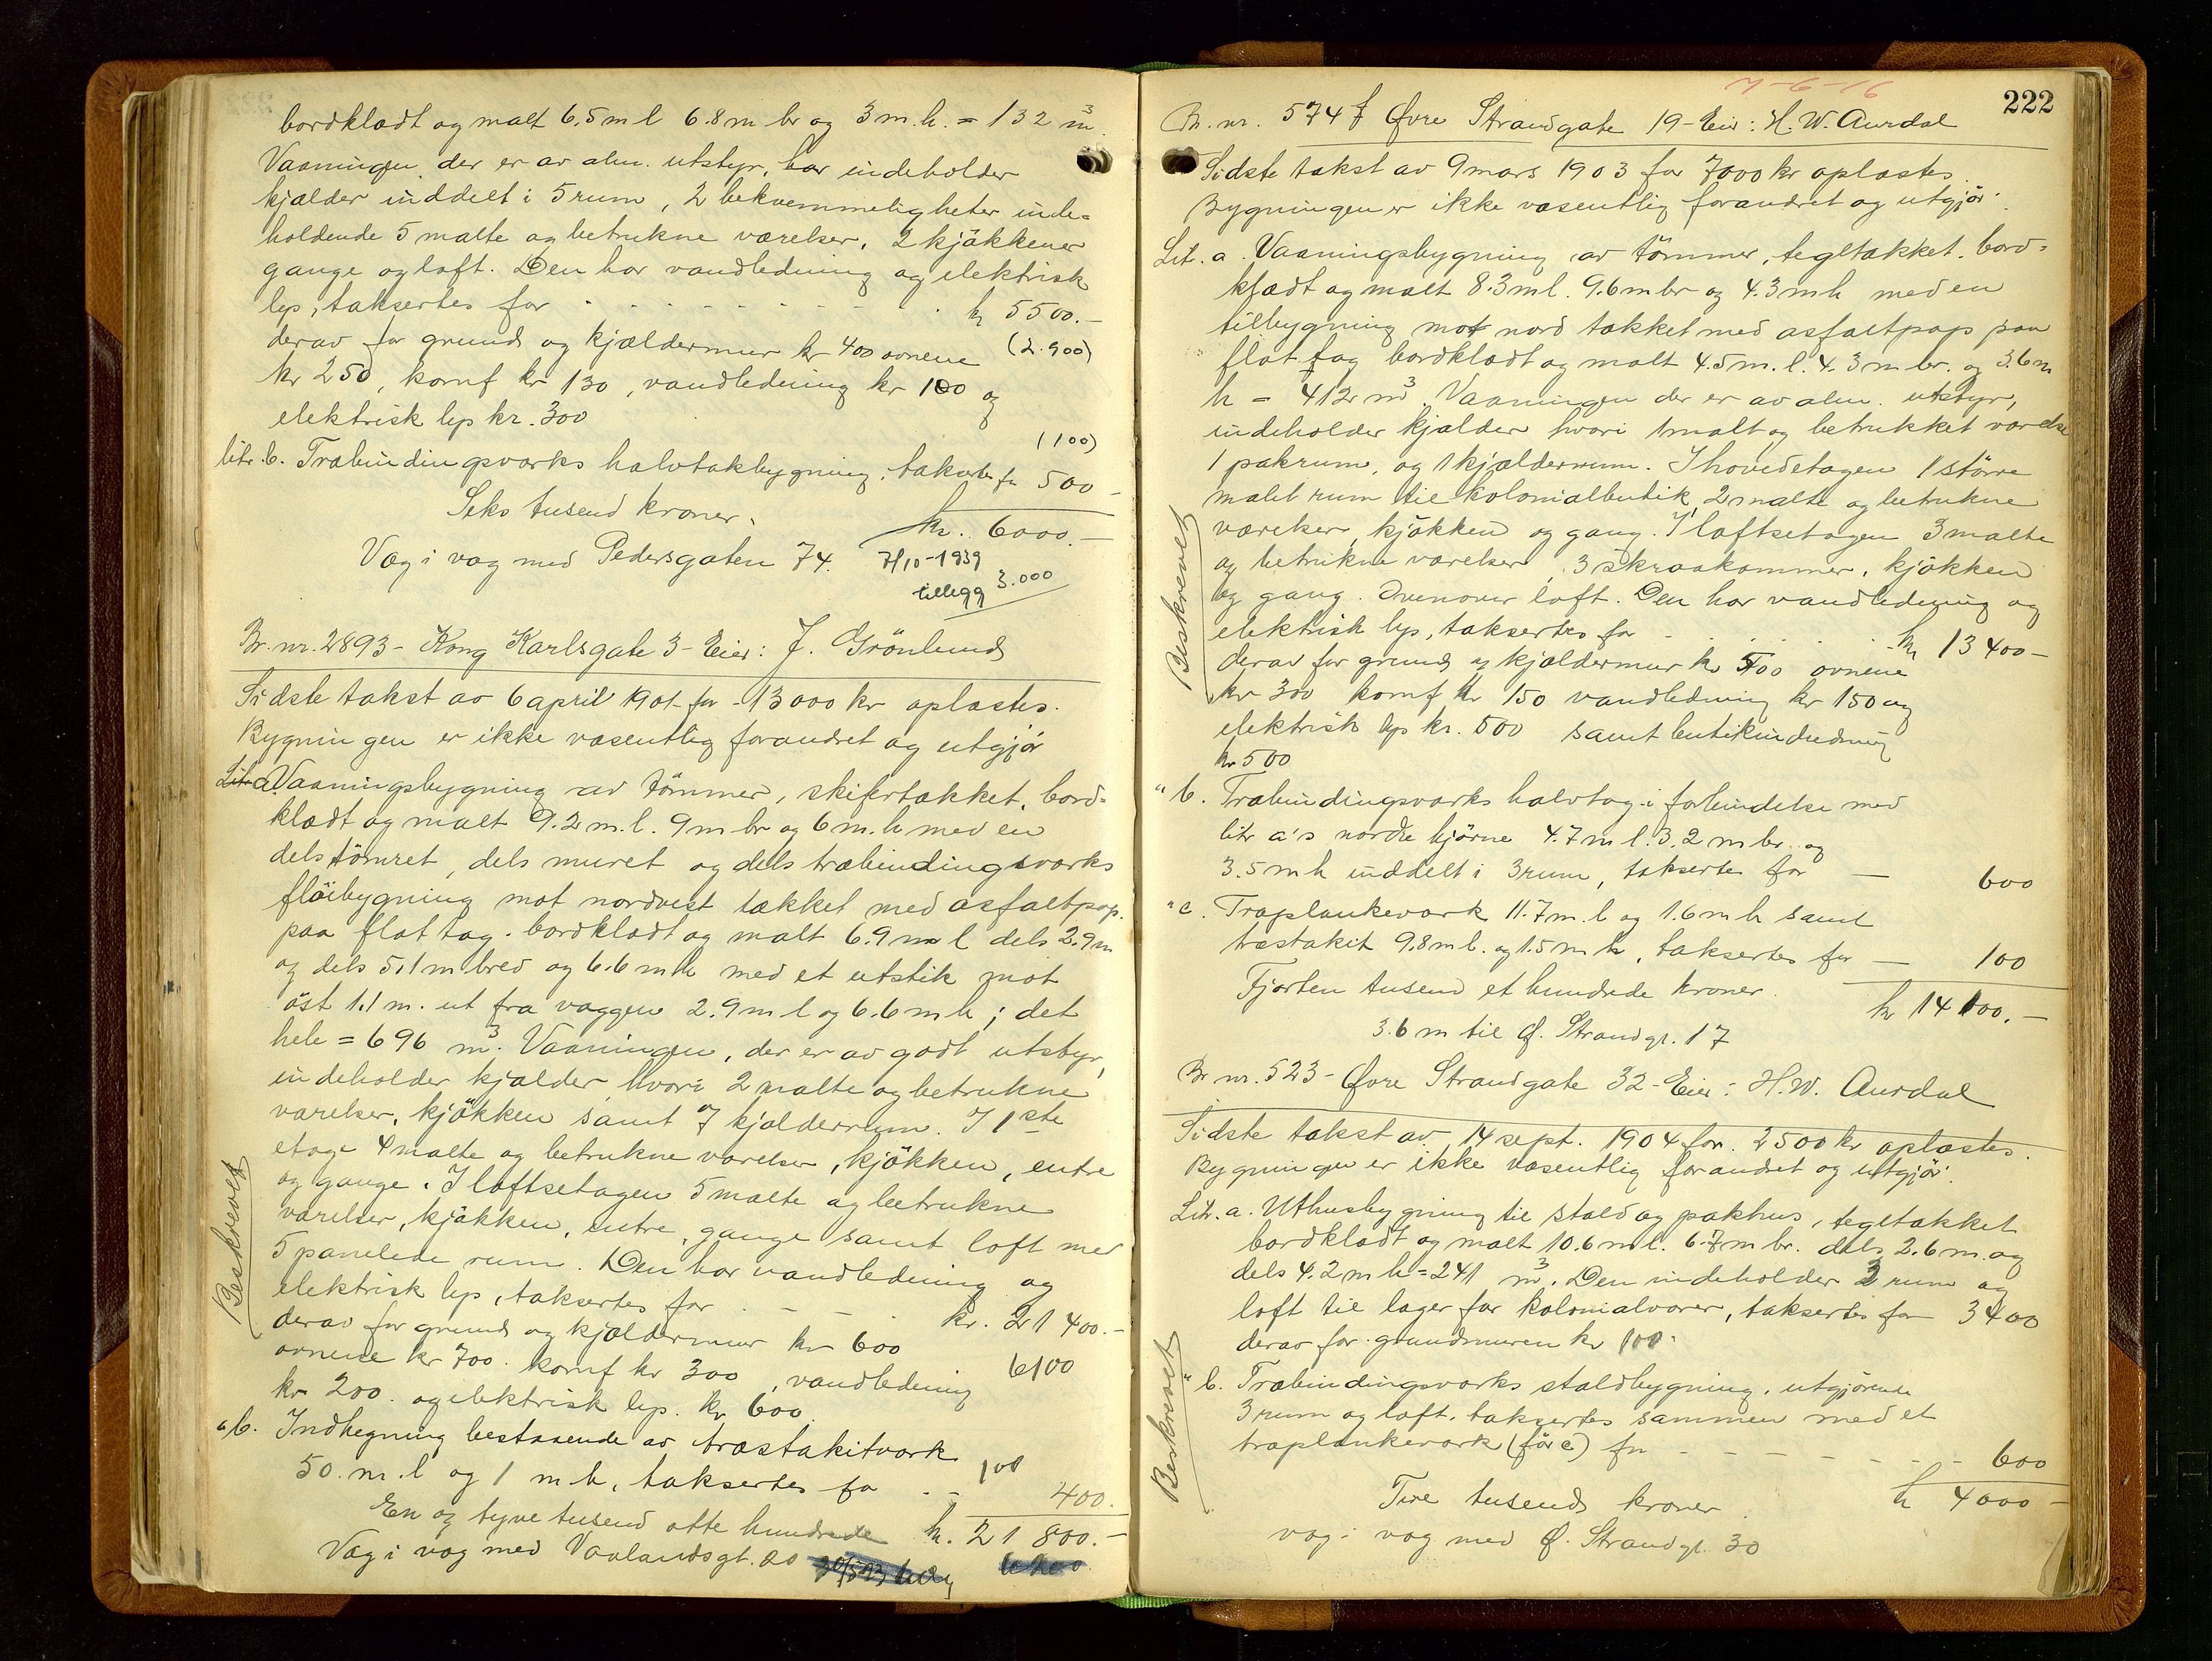 bordklædt og malt 6.5 m l 6.8 m br og 3 m. h. = 132 m³.
Vaaningen der er av alm. utstyr, har indeholder
kjælder inddelt i 5 rum, 2 bekvemmeligheter inde=
holdende 5 malte og betrukne værelser, 2 kjøkkener
gange og loft. Den har vandledning og elektrisk
lys, taksertes for - - - - - - - kr 5500.-
derav for grund og kjældermur kr 400 ovnene (2.900)
kr 250, komf kr 130, vandledning kr 100 og
elektrisk lys kr. 300
(100)
litr. b. Træbindingsværks halvtakbygning, taksertes for 500 -
Seks tusend kroner. kr. 6000.-
Væg i væg med Pedersgaten 74. 7/10-1939
tillegg 3.000
Br. nr. 2893 - Kong Karlsgate 3 - Eier: J. Grönlund
Sidste takst av 6 april 1901 for - 13000 kr oplæstes.
Bygningen er ikke væsentlig forandret og utgjör
Litr a. Vaaningsbygning av tömmer, skifertækket, bord=
klædt og malt 9.2 m. l. 9 m br og 6 m. h med en
dels tömret, dels muret og dels træbindingsværks
flöibygning mot nordvest tækket med asfaltpap.
paa flat tag. bordklædt og malt 6.9 m l dels 2.9 m
og dels 5.1 m bred og 6.6 m h med et utstik mot
öst 1.1 m. ut fra væggen 2.9 m l og 6.6 m h; det
hele = 696 m³. Vaaningen, der er av godt utstyr,
indeholder kjælder, hvori 2 malte og betrukne
værelser, kjökken samt 7 kjælderrum. I 1ste
etage 4 malte og betrukne værelser, kjökken, entre
og gange. I loftsetagen 5 malte og betrukne
værelser, kjökken, entre, gange samt loft med
5 panelede rum. Den har vandledning og
elektrisk lys, taksertes for - - - kr. 21 400.-
derav for grund og kjældermur kr 600
ovnene kr 700. komf kr 300, vandledning 6100
kr 200. og elektrisk lys. kr 600.
Beskrevet
" b. Indhegning bestaaende av træstakitværk
50. m. l og 1 m h, taksertes for - - 100 400.
En og tyve tusend otte hundrede kr. 21 800.-
Væg i væg med Vaalandsgt. 20
222
7-6-16
Br. nr. 574 f Øvre Strandgate 19 - Eier: H. W. Aurdal
Sidste takst av 9 mars 1903 for 7000 kr oplæstes.
Bygningen er ikke væsentlig forandret og utgjör:
Lit. a. Vaaningsbygning av tömmer, tegltækket, bord=
klædt og malt 8.3 m l. 9.6 m br og 4.3 m h med en
tilbygning mot nord tækket med asfaltpap paa
flat tag bordklædt og malt 4.5 m. l. 4.3 m br. og 3.6 m
h = 412 m³. Vaaningen der er av alm. utstyr,
indeholder kjælder hvori 1 malt og betrukket værelse
1 pakrum, og 1 kjælderrum. I hovedetagen 1 större
malet rum til kolonialbutik, 2 malte og betrukne
værelser, kjökken og gang. I loftsetagen 3 malte
og betrukne værelser, 3 skraakammer, kjökken
og gang. Ovenover loft. Den har vandledning og
elektrisk lys, taksertes for - - - - - kr 13 400 -
derav for grund og kjældermur kr 500 ovnene
kr 300 komf kr 150 vandledning kr 150 og
elektrisk lys kr. 500 samt butikindredning
kr 500
Beskrevet
" b. Træbindingsværks halvtag i forbindelse med
litr a's nordre hjörne 4.7 m l. 3.2 m br. og
3.5 m h inddelt i 3 rum, taksertes for — 600
" c. Træplankeværk 11.7 m. l og 1.6 m h samt
træstakit 9.8 m l. og 1.5 m h, taksertes for — 100
Fjorten tusend et hundrede kroner. kr 14100.-
3.6 m til Ø. Strandgt. 17
Br nr. 523 - Øvre Strandgate 32 - Eier: H. W. Aurdal
Sidste takst av 14 sept. 1904 for 2500 kr oplæstes.
Bygningen er ikke væsentlig forandret og utgjör:
Litr. a. Uthusbygning til stald og pakhus, tegltækket
bordklædt og malt 10.6 m l. 6.7 m br. dels 2.6 m. og
dels 4.2 m h = 241 m³. Den indeholder 3 rum og
loft til lager for kolonialvarer, taksertes for 3400
derav for grundmuren kr 100.-
" b. Træbindingsværks staldbygning, utgjörende
3 rum og loft, taksertes sammen med et
træplankeværk (för c) for - - - - - 600
Beskrevet
Fire tusend kroner. kr 4000 -
væg i væg med Ø. Strandgt. 30